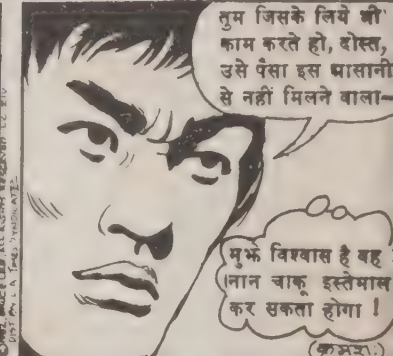 तुम जिसके लिये भी
काम करते हो, दोस्त,
उसे पैसा इस आसानी
से नहीं मिलने वाला—
मुझे विश्वास है वह
नान चाकू इस्तेमाल
कर सकता होगा !
(क्रमशः)